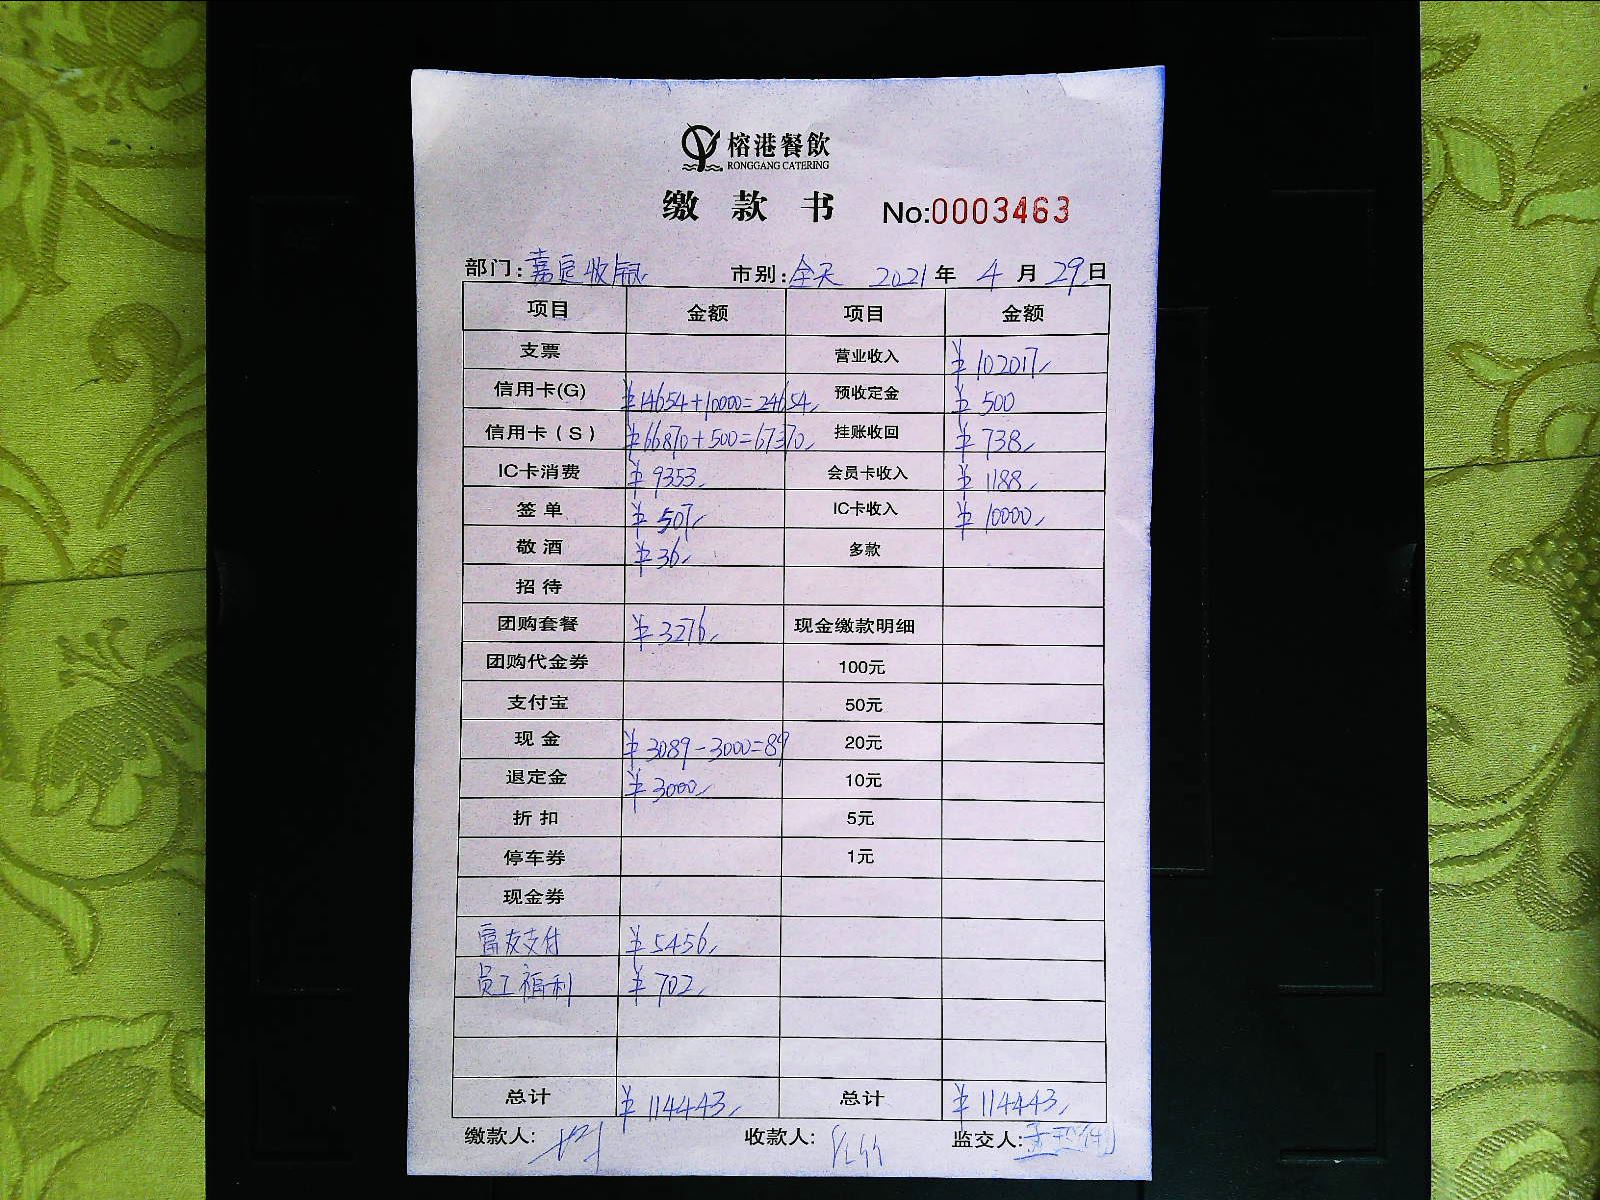 榕港餐飲
RONGGANG CATERING
缴款书 No:0003463
部门:嘉定收银 市别:全天 2021年 4月 29日
项目 金额 项目 金额
支票 营业收入 ¥102017
信用卡(G) ¥14654+10000=24654 预收定金 ¥500
信用卡(S) ¥66870+500=67370 挂账收回 ¥738
IC卡消费 ¥9353 会员卡收入 ¥1188
签单 ¥507 IC卡收入 ¥10000
敬酒 ¥36 多款
招待
团购套餐 ¥3276 现金缴款明细
团购代金券 100元
支付宝 50元
现金 ¥3089-3000=89 20元
退定金 ¥3000 10元
折扣 5元
停车券 1元
现金券
富友支付 ¥5456
员工福利 ¥702
总计 ¥114443 总计 ¥114443
缴款人: 收款人: 监交人: